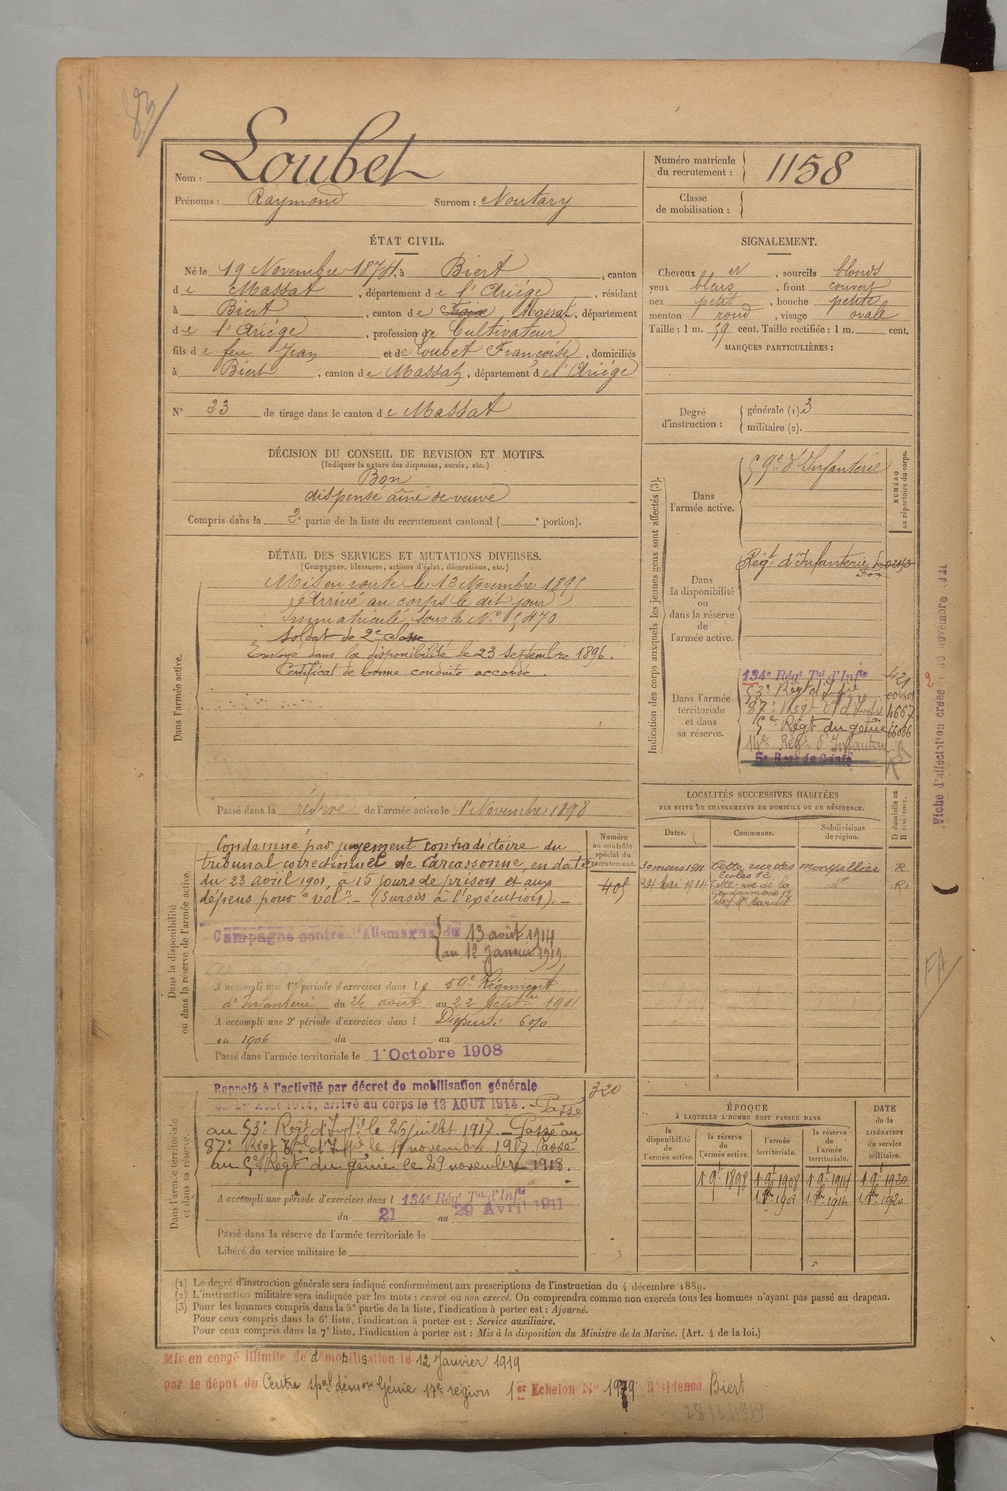 83
Nom : Loubet
Prénoms : Raymond Surnom : Noutary
Numéro matricule du recrutement : 1158
Classe de mobilisation :
ÉTAT CIVIL.
Né le 19 Novembre 1874, à Biert, canton
de Massat, département de l'Ariège, résidant
à Biert, canton de Foix Massat, département
de l'Ariège, profession de Cultivateur
fils de feu Jean et de Loubet Françoise, domiciliés
à Biert, canton de Massat, département de l'Ariège
N° 23 de tirage dans le canton de Massat
SIGNALEMENT.
Cheveux , sourcils blonds
yeux bleus, front couvert
nez petit, bouche petite
menton rond, visage ovale
Taille : 1 m. 59 cent. Taille rectifiée : 1 m. cent.
MARQUES PARTICULIÈRES :
Degré d'instruction : générale (1). 3
militaire (2).
DÉCISION DU CONSEIL DE REVISION ET MOTIFS.
(Indiquer la nature des dispenses, sursis, etc.)
Bon
dispensé aîné de veuve
Compris dans la 2e partie de la liste du recrutement cantonal ( e portion).
DÉTAIL DES SERVICES ET MUTATIONS DIVERSES.
(Campagnes, blessures, actions d'éclat, décorations, etc.)
Dans l'armée active.
Mis en route le 13 Novembre 1895
Arrivé au corps le dit jour
immatriculé sous le N° 5470
Soldat de 2e classe
Envoyé dans la disponibilité le 23 Septembre 1896.
Certificat de bonne conduite accordé.
Passé dans la réserve de l'armée active le 1er Novembre 1898
Indication des corps auxquels les jeunes gens sont affectés (3).
NUMÉRO au répertoire du corps.
Dans l'armée active.
59e d'Infanterie
Dans la disponibilité ou dans la réserve de l'armée active.
Régt d'Infanterie
Dans l'armée territoriale et dans sa réserve.
134e Rég Tal d'Infie 421
53e Régt d'Infie
87e Régt d'Infie 4667
5e Régt du génie
14e Rég. d'Infanterie
5e Régt du Génie
Fiche d'affectation créée le 30 novembre
Dans la disponibilité ou dans la réserve de l'armée active.
Numéro au contrôle spécial du recrutement.
Condamné par jugement contradictoire du
tribunal correctionnel de Carcassonne, en date
du 23 avril 1901, à 15 jours de prison et aux
dépens pour "vol". — (Sursis à l'exécution). —
405
Campagne contre l'Allemagne du 13 août 1914
au 12 janvier 1919
A accompli une 1re période d'exercices dans le 59e Régiment
d'Infanterie du 26 août au 22 Septbre 1901
A accompli une 2e période d'exercices dans l Dispensé 6%
en 1906 du au
Passé dans l'armée territoriale le 1er Octobre 1908
LOCALITÉS SUCCESSIVES HABITÉES
PAR SUITE DE CHANGEMENTS DE DOMICILE OU DE RÉSIDENCE.
Dates. Communes. Subdivisions de région. D domicile ou R résidence.
30 mars 1911 Cette, rue des Ecoles 12 Montpellier R
24 1914 Cette rue de la Gendarmerie d° R
Dans l'armée territoriale et dans sa réserve.
Rappelé à l'activité par décret de mobilisation générale
du 1er Août 1914, arrivé au corps le 13 AOUT 1914. — Passé
au 53e Régt d'Infie le 26 juillet 1917. — Passé au
87e Régt d'Infie le 17 novembre 1917. Passé
au 5e Régt du génie le 29 novembre 1918.
320
A accompli une période d'exercices dans l 134e Rég Tal d'Infie
du 21 au 29 Avril 1911
Passé dans la réserve de l'armée territoriale le
Libéré du service militaire le
ÉPOQUE À LAQUELLE L'HOMME DOIT PASSER DANS
la disponibilité de l'armée active. la réserve de l'armée active. l'armée territoriale. la réserve de l'armée territoriale.
DATE de la LIBÉRATION du service militaire.
1 9bre 1898 1 9bre 1908 1 9bre 1914 1 9bre 1920
(1) Le degré d'instruction générale sera indiqué conformément aux prescriptions de l'instruction du 4 décembre 1889.
(2) L'instruction militaire sera indiquée par les mots : exercé ou non exercé. On comprendra comme non exercés tous les hommes n'ayant pas passé au drapeau.
(3) Pour les hommes compris dans la 5e partie de la liste, l'indication à porter est : Ajourné.
Pour ceux compris dans la 6e liste, l'indication à porter est : Service auxiliaire.
Pour ceux compris dans la 7e liste, l'indication à porter est : Mis à la disposition du Ministre de la Marine. (Art. 4 de la loi.)
Mis en congé illimité de démobilisation le 12 Janvier 1919
par le dépôt du Centre spal démon Génie 17e région 1er Echelon N° 1979 Résidence Biert
28/3/1919